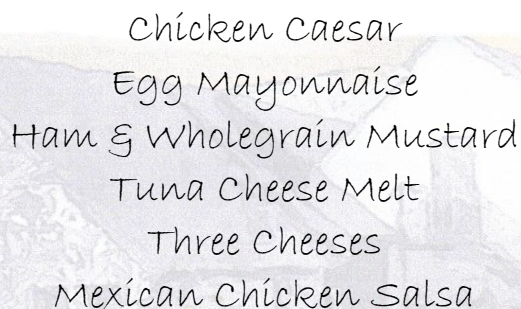 Chicken Caesar
Egg Mayonnaise
Ham & Wholegrain Mustard
Tuna Cheese Melt
Three Cheeses
Mexican Chicken Salsa